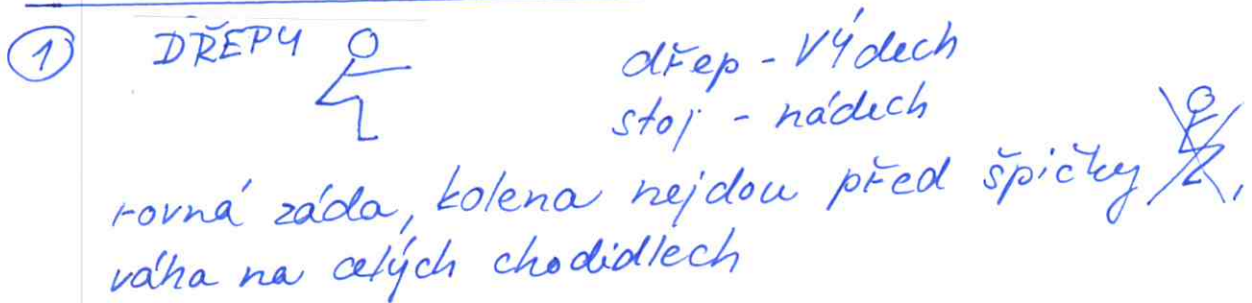 1 DŘEPY dřep - výdech
stoj - nádech
rovná záda, kolena nejdou před špičky,
váha na celých chodidlech